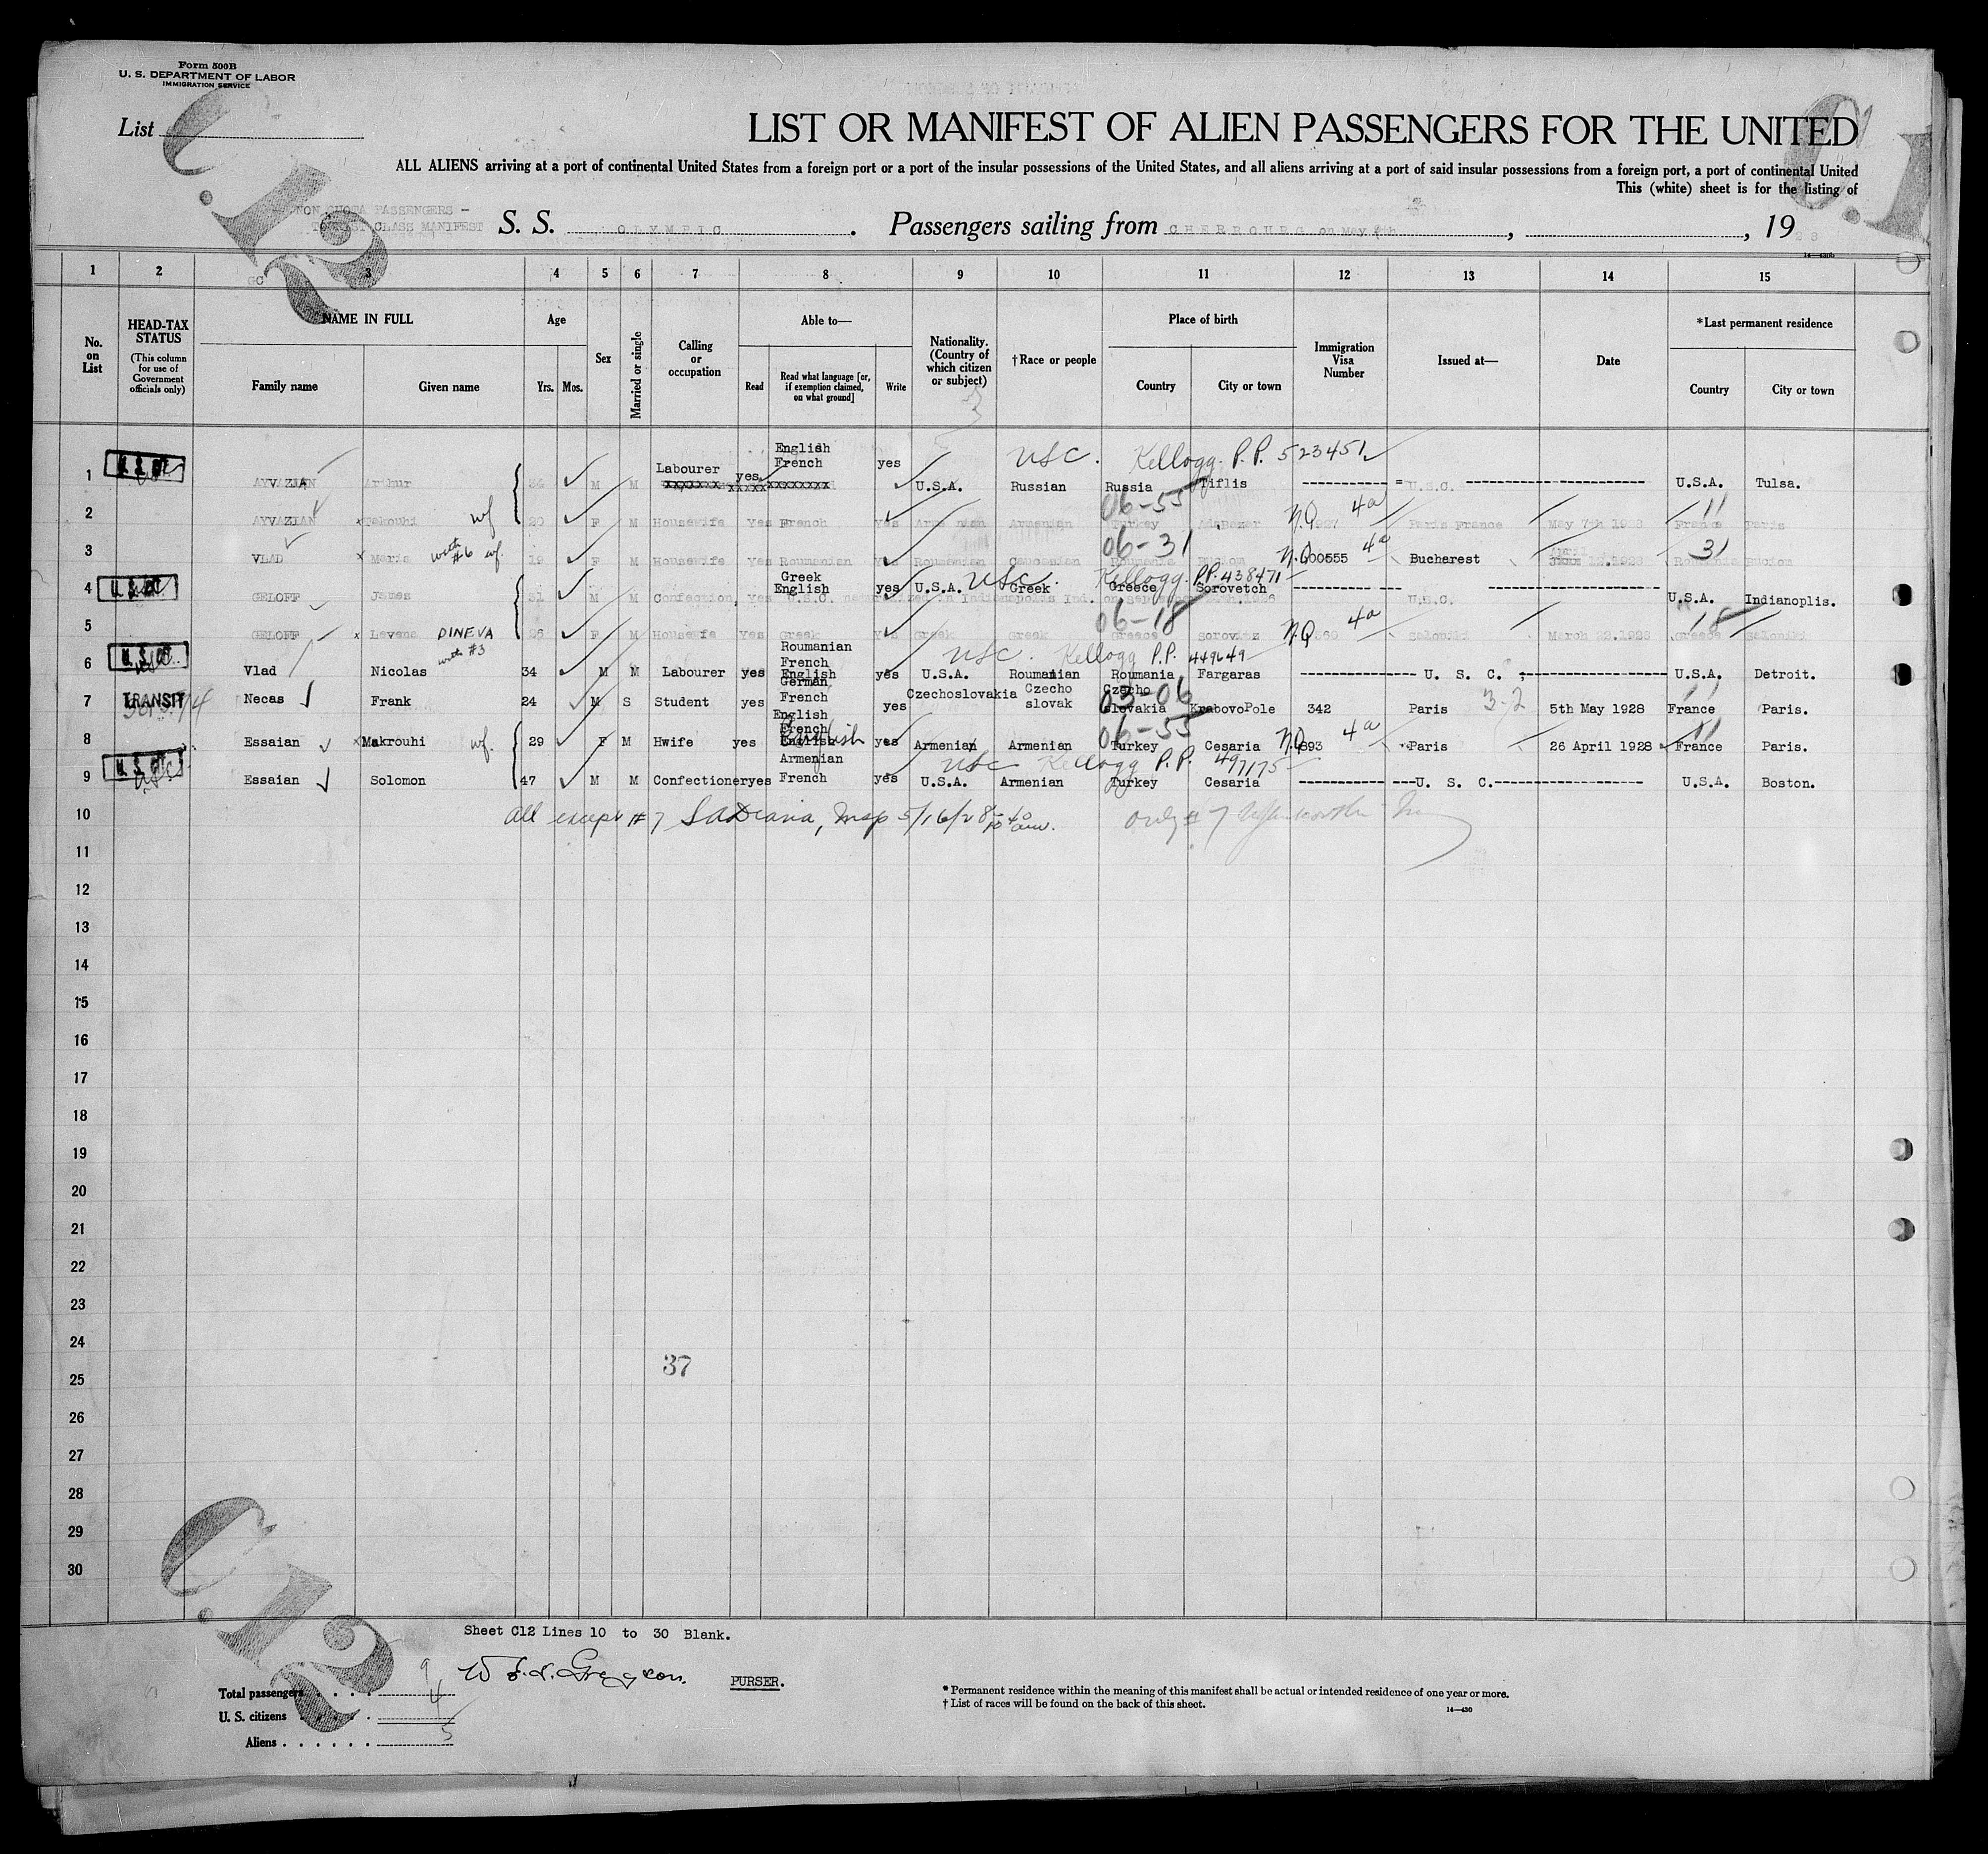 Form 500B
U. S. DEPARTMENT OF LABOR
IMMIGRATION SERVICE
List
LIST OR MANIFEST OF ALIEN PASSENGERS FOR THE UNITED
ALL ALIENS arriving at a port of continental United States from a foreign port or a port of the insular possessions of the United States, and all aliens arriving at a port of said insular possessions from a foreign port, a port of continental United
This (white) sheet is for the listing of
C.12
NON QUOTA PASSENGERS -
TOURIST CLASS MANIFEST
S. S. OLYMPIC. Passengers sailing from CHERBOURG on May 9th, , 1928
1 2 3 4 5 6 7 8 9 10 11 12 13 14 15
GC
No. on List
HEAD-TAX STATUS
(This column for use of Government officials only)
NAME IN FULL
Family name Given name
Age
Yrs. Mos.
Sex
Married or single
Calling or occupation
Able to—
Read
Read what language [or, if exemption claimed, on what ground]
Write
Nationality. (Country of which citizen or subject)
†Race or people
Place of birth
Country City or town
Immigration Visa Number
Issued at—
Date
*Last permanent residence
Country City or town
USC. Kellogg. P.P. 523451
1 AYVAZIAN Arthur M M Labourer yes English French yes U.S.A. Russian Russia Tiflis U.S.C. U.S.A. Tulsa.
06-55 N.Q 4a 11
2 AYVAZIAN Takouhi wf 20 F M Housewife Yes French Yes Armenian Armenian Turkey Paris France May 7th 1928 France Paris
06-31 N.Q 4a 31
3 VLAD Maria with #6 wf. 19 F M Housewife Yes Roumanian Roumanian Roumania 00555 Bucharest April 1928 Roumania
USC. Kellogg. P.P. 438471
4 GELOFF James 31 M M Confection, Yes Greek English yes U.S.A. Greek Greece Sorovetch U.S.C. U.S.A. Indianoplis.
U.S.C. naturalized in Indianapolis Ind.
06-18 N.Q 4a 18
5 GELOFF Levena DINEVA 26 F M Housewife Yes Greek Yes Greek Greek Greece Sorovitz Saloniki March 22.1928 Greece Saloniki
with #3
USC. Kellogg P.P. 449649
6 Vlad Nicolas 34 M M Labourer yes Roumanian French English yes U.S.A. Roumanian Roumania Fargaras U. S. C. U.S.A. Detroit.
03-06 3-2 11
7 TRANSIT Necas Frank 24 M S Student yes German French English yes Czechoslovakia Czecho slovak Czecho slovakia KrabovoPole 342 Paris 5th May 1928 France Paris.
06-55 N.Q 4a 11
8 Essaian Makrouhi wf. 29 F M Hwife yes French English yes Armenian Armenian Turkey Cesaria 893 Paris 26 April 1928 France Paris.
USC Kellogg P.P. 497175
9 Essaian Solomon 47 M M Confectioner yes Armenian French yes U.S.A. Armenian Turkey Cesaria U. S. C. U.S.A. Boston.
10 All except #7 Insp 5/16/28 only #7
11
12
13
14
15
16
17
18
19
20
21
22
23
24
37
25
26
27
28
29
30
C.12
Sheet C12 Lines 10 to 30 Blank.
PURSER.
Total passengers 9
U. S. citizens 4
Aliens 5
* Permanent residence within the meaning of this manifest shall be actual or intended residence of one year or more.
† List of races will be found on the back of this sheet.
14—430